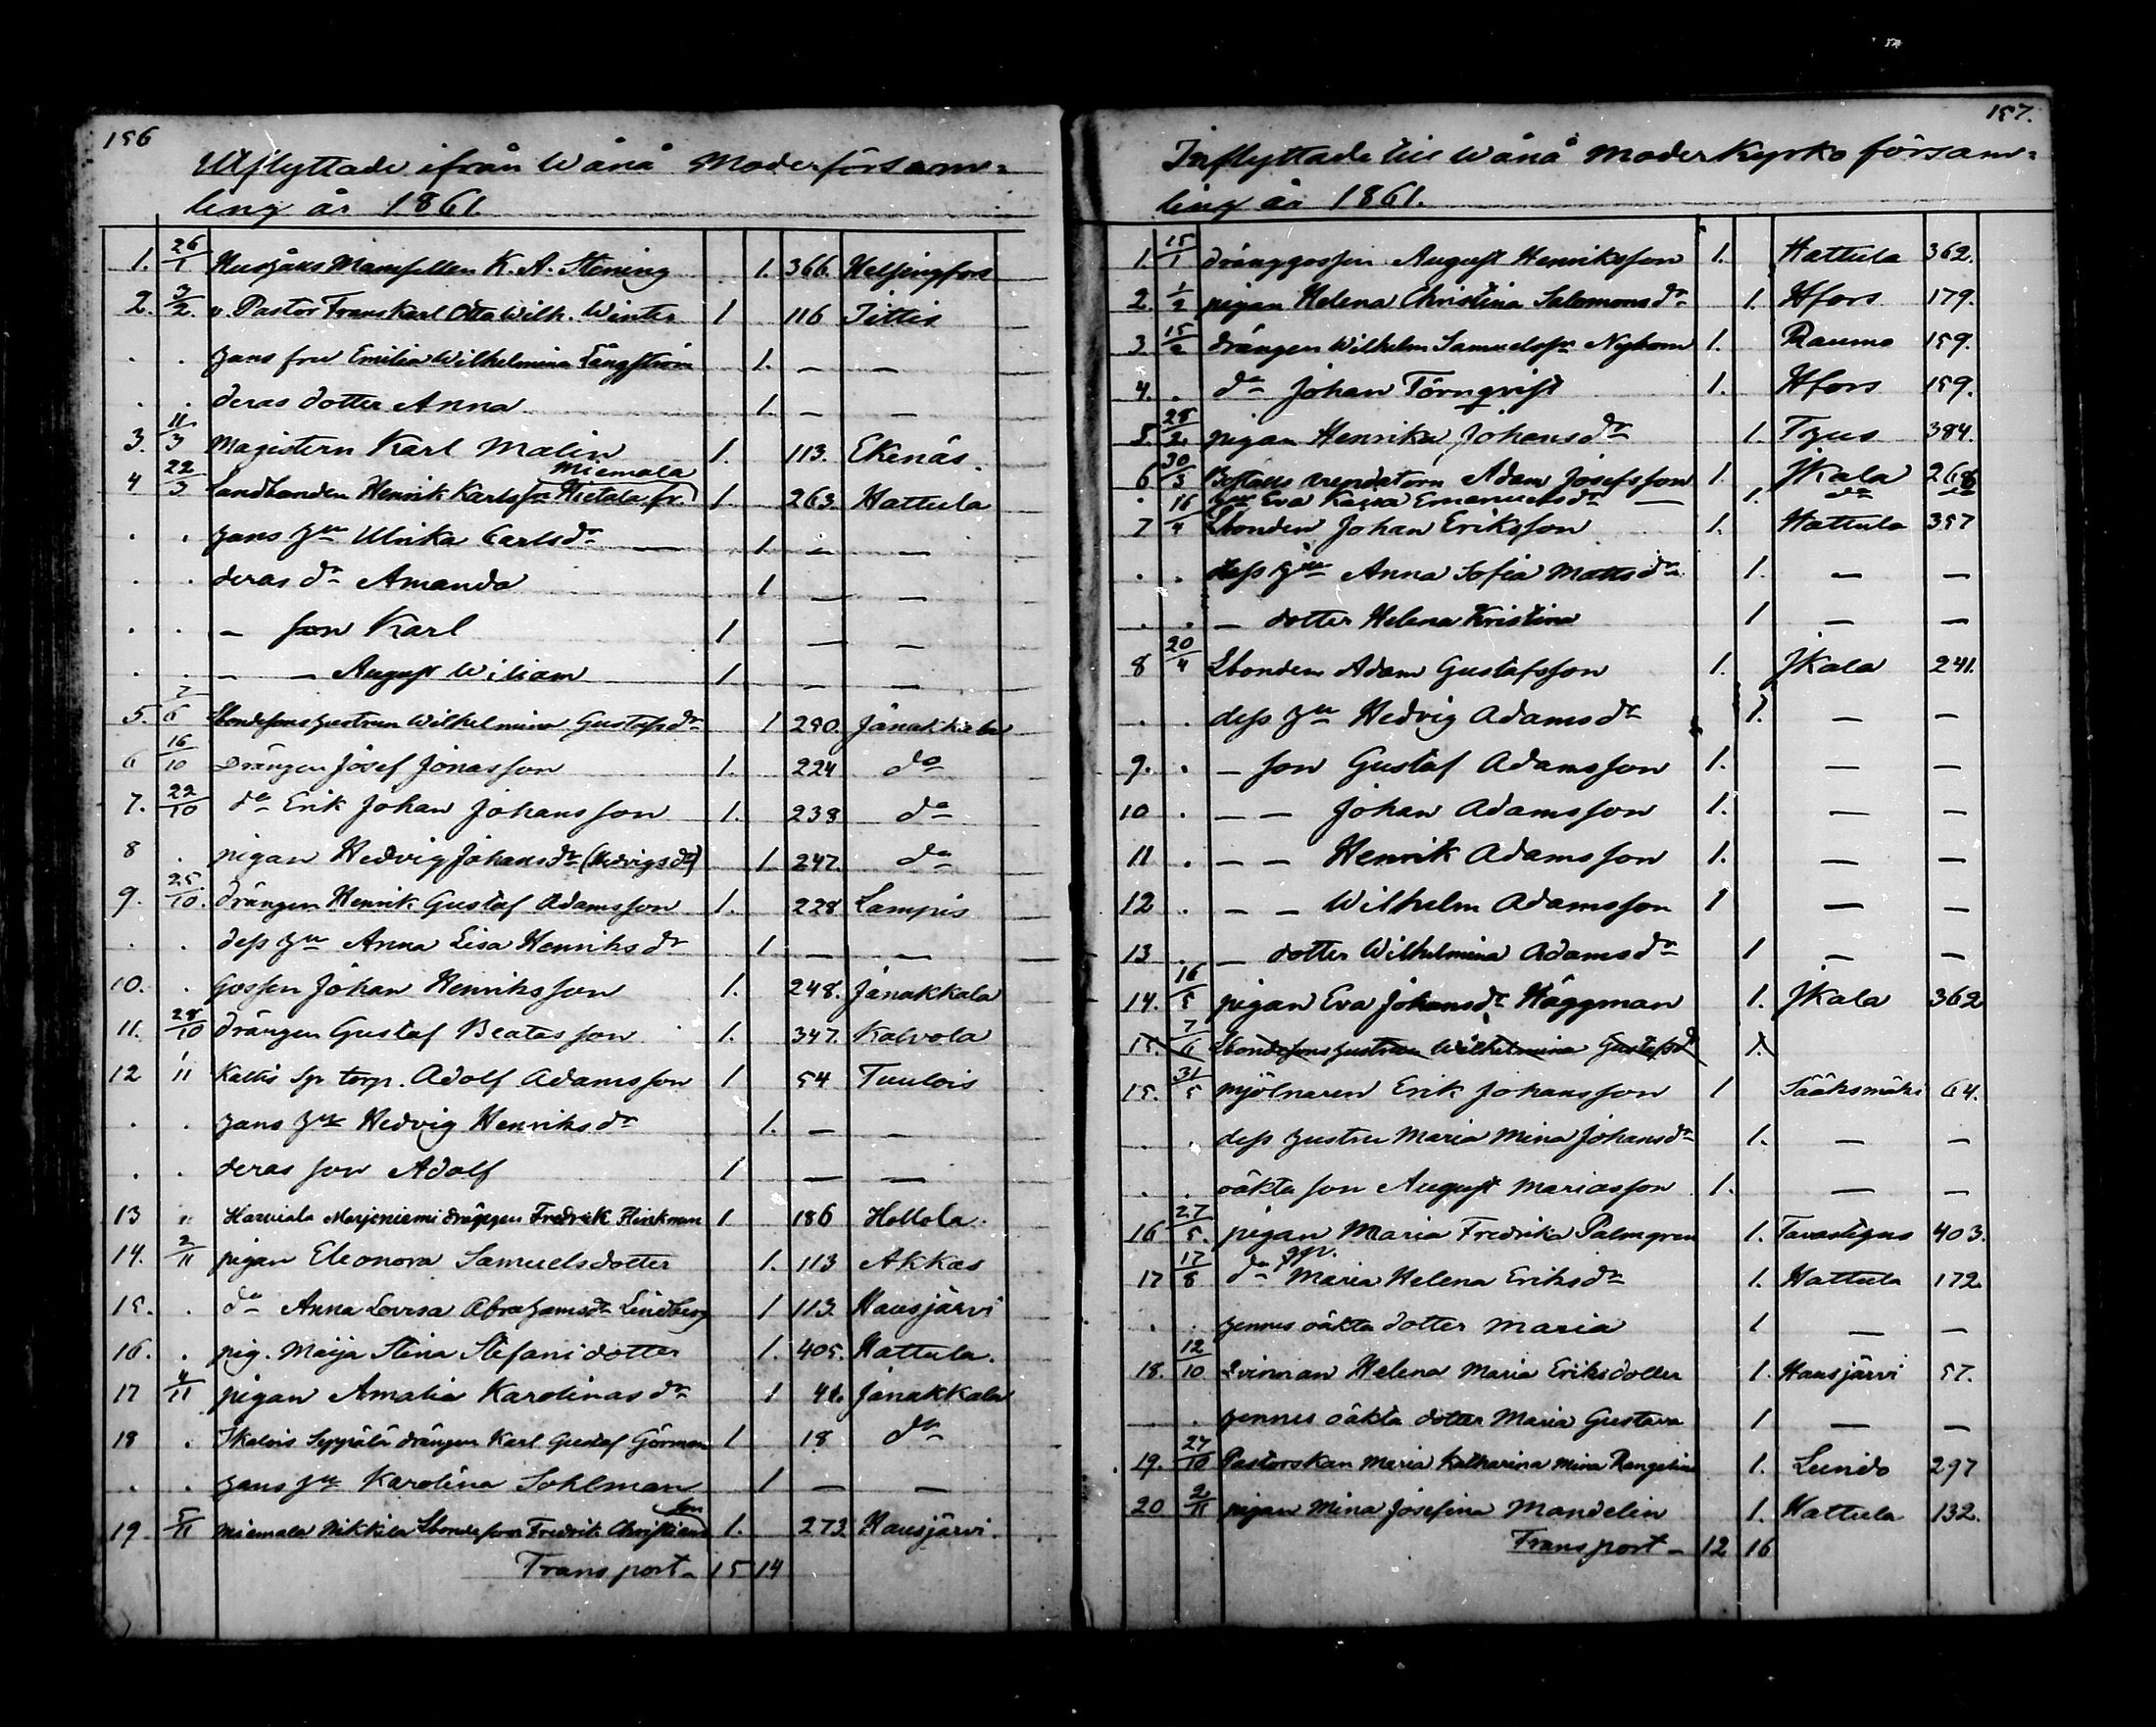 156
Utflyttade ifrån Wånå Moderförsam=
ling år 1861.
1. 26/1 Husjåns Mamsellen K. A. Stening 1. 366. Helsingfors
2. 3/2. v. Pastor Frans Karl Otto Wilh. Winter 1 116 Jittis
. . hans fru Emilia Wilhelmina Tängström 1. — —
. . deras dotter Anna 1. — —
3. 11/3 Magistern Karl Malin 1. 113. Ekenäs.
Miemala
4 22/3 Landbonden Henrik Karlss: Hietala fr. 1. 263. Hattula
. . hans hu Ulrika Carlsdr — 1. — —
. . deras dr Amanda 1 — —
. . — son Karl 1 — —
. . — — August Wiliam 1 — —
5. 7/6 Lbondesons hustrun Wilhelmina Gustafsdr 1 250. Janakkala
6 16/10 Drängen Josef Jonasson 1. 224 do
7. 22/10 do Erik Johan Johansson 1. 238 do
8 . pigan Hedvig Johansdr (Hedvigsdr) 1. 247. do
9. 25/10. drängen Henrik Gustaf Adamsson 1. 228 Lampis
. . dess hu Anna Lisa Henriksdr 1. — —
10. . Gossen Johan Henriksson 1. 248. Janakkala
11. 28/10 drängen Gustaf Beatasson 1. 347. Kalvola
12 1/11 Kattis Sp torp. Adolf Adamsson 1 54 Tuulois
. . hans hu Hedvig Henriksdr 1. — —
. . deras son Adolf 1 — —
13 " Harviala Marjoniemi drängen Fredrik Flinkman 1 186 Hollola.
14. 2/11 pigan Eleonora Samuelsdotter 1. 113 Akkas
15. . do Anna Lovisa Abrahamsdr Lindberg 1 113. Hausjärvi
16. . pig. Maija Stina Stefanidotter 1. 405. Hattula.
17 4/11 pigan Amalia Karolinasdr 1 41. Janakkala
18 . Ikalois Seppälä drängen Karl Gustaf Görman 1 18 do
. . hans hu Karolina Sohlman 1 — —
son
19 5/11 Miemala Nikkila Lbondeson Fredrik Christians 1. 273. Hausjärvi.
Transport — 15 14
157.
Inflyttade till Wånå Moderkyrko försam=
ling år 1861.
1. 15/1 dränggossen August Henriksson 1. Hattula 362.
2. 1/2 pigan Helena Christina Salomonsdr 1. Hfors 179.
3. 15/2 drängen Wilhelm Samuelss: Nybom 1. Raumo 159.
4. . do Johan Törnqvist 1. Hfors 159.
5. 28/2. pigan Henrika Johansdr 1. Thus 384.
6 30/3 Boställs arendatorn Adam Josefsson 1. JKala 268
. hu Eva Kaisa Emanuelsdr — 1. do
7 16/4 Lbonden Johan Eriksson 1. Hattula 357
. . dess hu Anna Sofia Mattsdr 1. — —
. . — dotter Helena Kristina 1 — —
8 20/4 Lbonden Adam Gustafsson 1. JKala 241.
. . dess hu Hedvig Adamsdr 1. — —
9. . — son Gustaf Adamsson 1. — —
10 . — — Johan Adamsson 1. — —
11 . — — Henrik Adamsson 1. — —
12 . — — Wilhelm Adamsson 1 — —
13 . — dotter Wilhelmina Adamsdr 1 — —
14. 16/5 pigan Eva Johansdr Häggman 1. JKala 362
15. 7/6 Lbondesons hustrun Wilhelmina Gustafsdr 1.
15. 31/5 mjölnaren Erik Johansson 1 Sääksmäki 64.
. . dess hustru Maria Mina Johansdr 1. — —
. . oäkta son August Mariasson 1. — —
16 27/5. pigan Maria Fredrika Palmgren 1. Tavastehus 403.
17 17/8 do Maria Helena Eriksdr 1. Hattula 172
. . hennes oäkta dotter Maria 1 — —
18. 12/10. Qvinnan Helena Maria Eriksdotter 1. Hausjärvi 57.
. . hennes oäkta dotter Maria Gustava 1 — —
19. 27/10 Pastorskan Maria Katharina Mina Rangelin 1. Lundo 297
20 2/11 pigan Mina Josefina Mandelin 1. Hattula 132.
Transport — 12 16